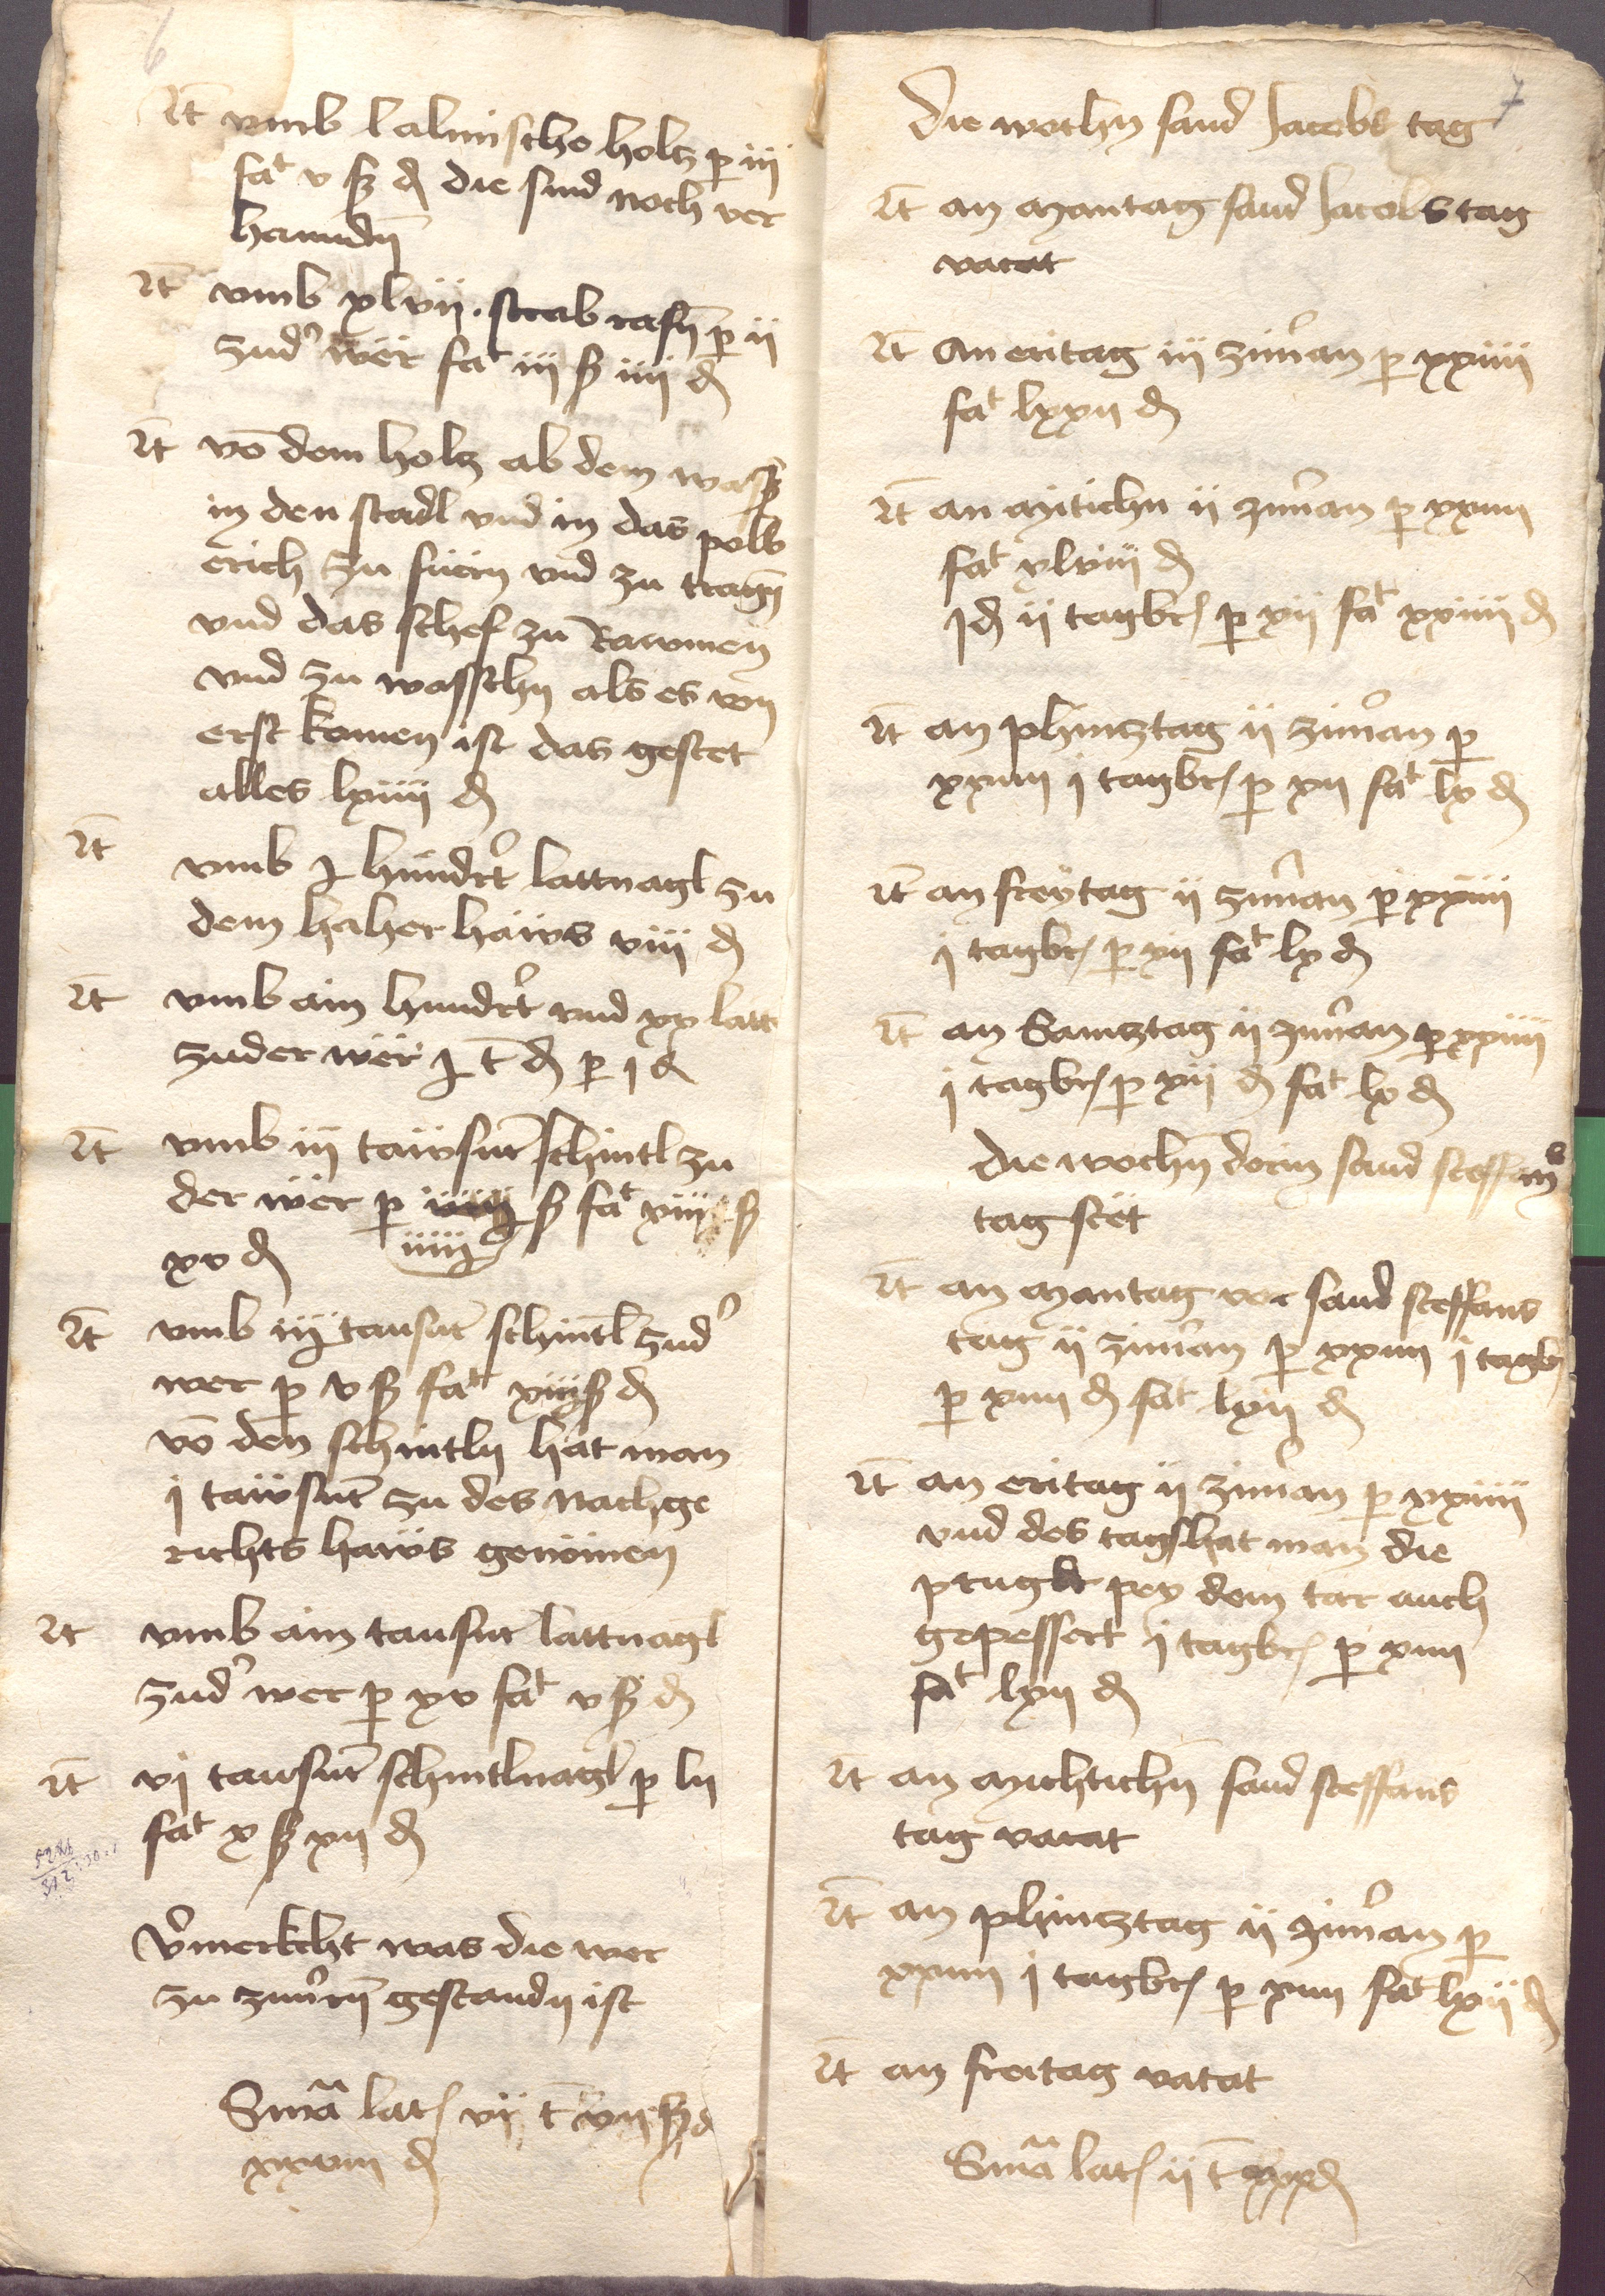 6
It vmb lalmische holcz p iii
fat v ß d die sind noch ver
handn
It vmb xlvii. strab rafn p ii
zud wer fat iii ß iiii d
It vo dem holcz ab dem wasß
in den stadl vnd in das polb
erich zu fürn vnd zu tragn
vnd das schef zu Rawmen
vnd zu wasschn als es von
erst komen ist das gestet
alles lxiiii d
It vmb j hundrt lattnagl zu
dem haher haws viii d
It vmb ain hundrt vnd xx latt
zu der wer j t d p i d
It vmb iii tawsnt schintl zu
der wer p iiiij ß fat xiii ß
xv d
It vmb iij tausnt schintl zud
wer p v ß fat ß d
vo den schintln hat man
j tawsnt zu des nachge
richts haws genomen
It vmb ain tausnt lattnagl
zud wer p xv fat v ß d
It vj tawsnt schintlnagl p lii
fat x ß xii d
Vmerkcht was die wer
zu zimrn gestandn ist
Sma lat vij t vii ß
xxviii d
7
Die wochn sand Jacobs tag
It an Mantag sand Jacobstag
vacat
It An eritag iii ziman p xxiiii
fat lxxii d
It an Mitichn ii ziman p xxiiii
fat xlviii d
Id ii tagbr p xii fat xxiiii d
It an phincztag ii ziman p
xxiiii j tagbr p xii fat lx d
It an freytag ii ziman p xxiiii
j tagbr p xii fat lx d
It an Samcztag ii ziman p xxiiii
j tagbr p xii d fat lx d
Die wochn dorin sand steffans
tag stet
It an Mantag vor sand steffans
tag ii ziman p xxiiii j tagbr
p xiiii d fat lxii d
It an eritag ii ziman p xxiiii
vnd des tags hat man die
prugkt pey dem tar auch
gepessert j tagbr p xiiii
fat lxii d
It an Michtichn sand steffans
tag vacat
It an phincztag ii ziman p
xxiiii j tagbr p xiiii fat lxii d
It an freitag vacat
Sma lat ii t xxx d